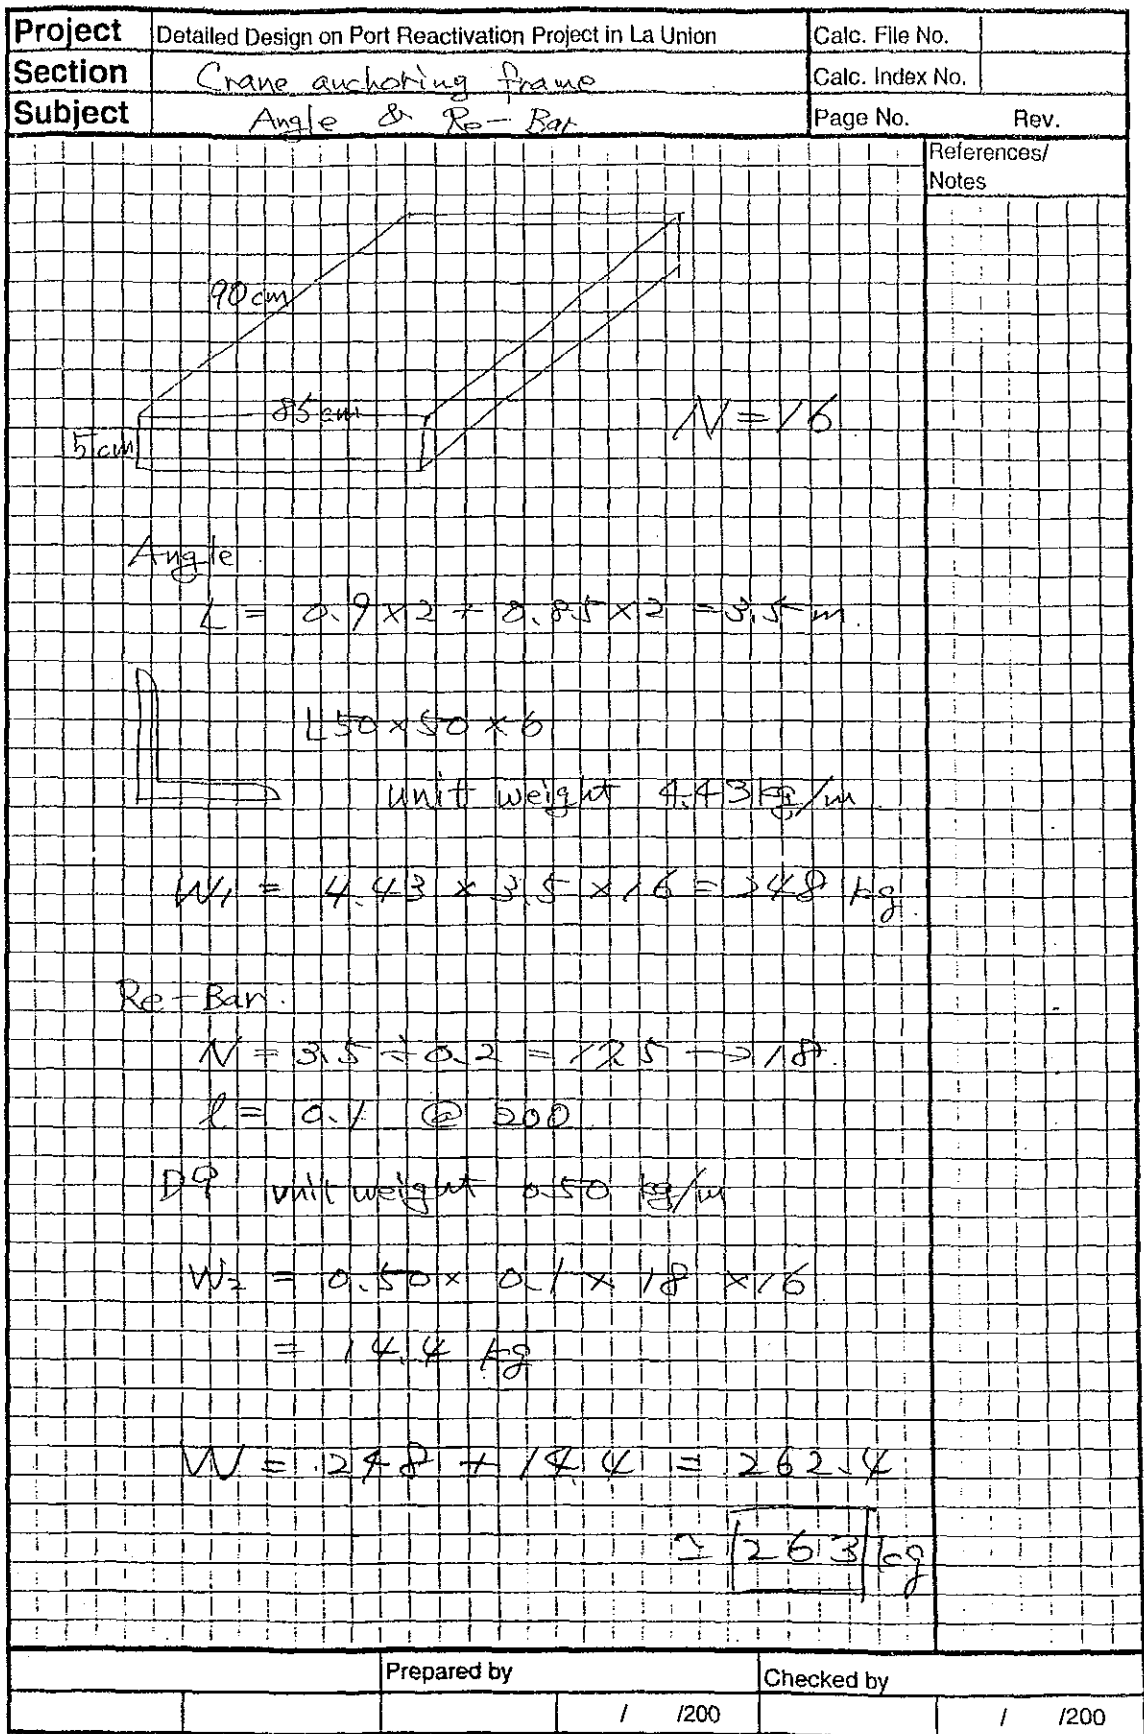 Project Detailed Design on Port Reactivation Project in La Union Calc. File No.
Section Crane anchoring frame Calc. Index No.
Subject Angle & Re-Bar Page No. Rev.
References/
Notes
90cm
85cm
N=16
5cm
Angle
L = 0.9×2 + 0.85×2 = 3.5 m.
L50×50×6
unit weight 4.43 kg/m
W1 = 4.43 × 3.5 × 16 = 248 kg.
Re-Bar.
N = 3.5 ÷ 0.2 = 17.5 → 18.
l = 0.1 @ 200
D9 unit weight 0.50 kg/m
W2 = 0.50 × 0.1 × 18 × 16
= 14.4 kg
W = 248 + 14.4 = 262.4
≃ 263 kg
Prepared by Checked by
/ /200 / /200